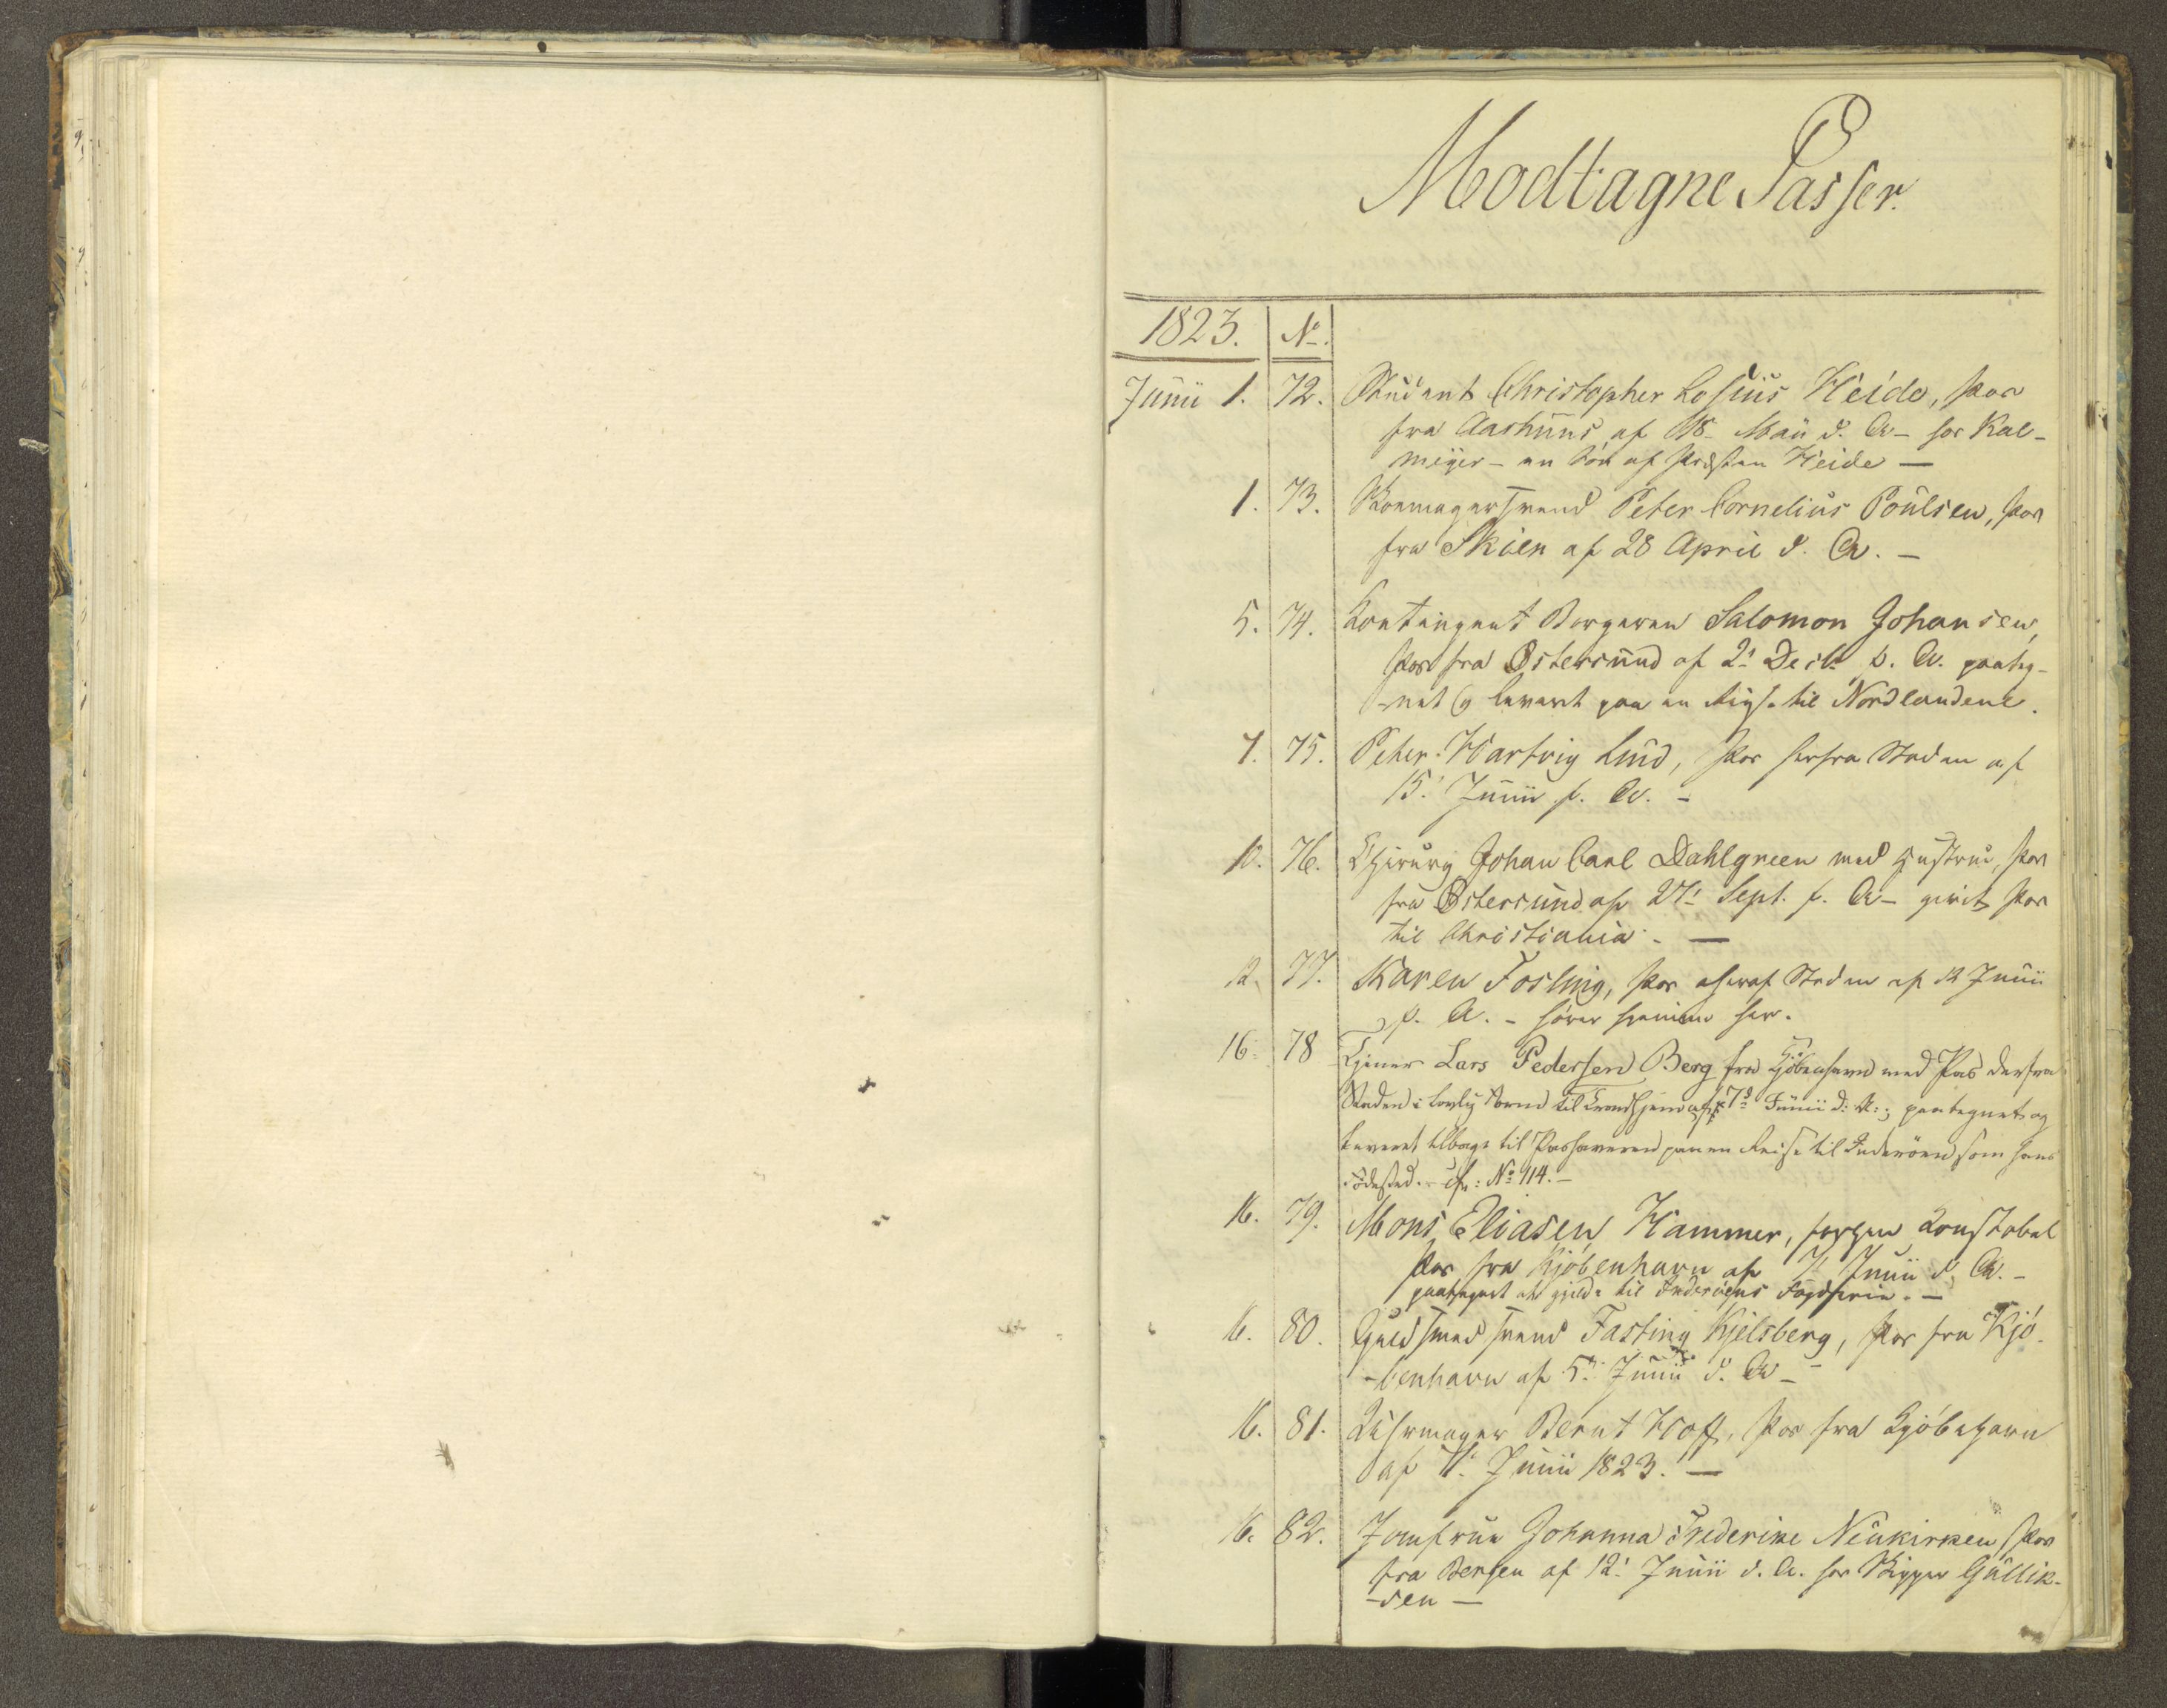 Modtagne Passer.
1823. No.
Junii 1. 72. Student Christopher Losius Heide, Pas
fra Aarhuus af 18 Maii d. A - hos Kal-
meijer - en Søn af Præsten Heide —
1. 73. Skomagersvend Peter Cornelius Poulsen, Pas
fra Skien af 28 April d. A. —
5. 74. Contingent Borgeren Salomon Johansen,
Pas fra Østersund af 2' Decbr. p. A. paateg-
-net og leveret paa en Reise til Nordlandene.
7. 75. Peter Hartvig Lund, Pas herfra Staden af
15' Junii f. A. -
10. 76. Chirurg Johan Carl Dahlgreen med Hustrue, Pas
fra Østersund af 27' Sept. f. A - givet Pas
til Christiania. —
12. 77. Karen Fosling, Pas her af Staden af 12 Junii
p. A. - hører hjemme her.
16. 78 Tjener Lars Pedersen Berg fra Kjöbenhavn med Pas derfra
Staden i lovlig Form til Trondhjem af 7de Junii d: A:; paategnet og
leveret tilbage til Pashaveren paa en Reise til Inderöen som hans
Födested. - cfr: No 114. -
16. 79. Mons Eliasen Hammer, Konstabel
Pas fra Kjöbenhavn af 7' Junii d. A. -
paategnet at gjelde til Inderöens Fogderie. —
16. 80. Guldsmedsvend Fasting Kjelsberg, Pas fra Kjö-
-benhavn af 5' Junii d. A -
16. 81. Uhrmager Bernt Hoff, Pas fra Kjöbehavn
af 7' Junii 1823. —
16. 82. Jomfrue Johanna Frederike Neukirken, Pas
fra Bergen af 12' Junii d. A. hos Skipper Gullik-
-sen —